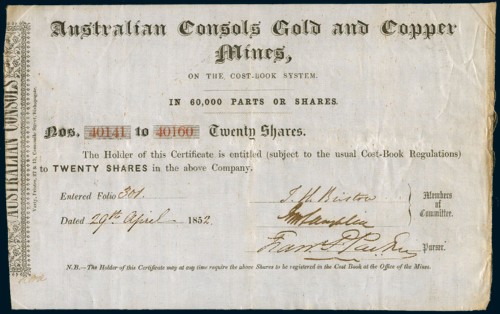 Australian Consols Gold and Copper
Mines,
ON THE COST-BOOK SYSTEM.
IN 60,000 PARTS OR SHARES.
Nos. 40141 to 40160 Twenty Shares.
The Holder of this Certificate is entitled (subject to the usual Cost-Book Regulations)
to TWENTY SHARES in the above Company,
Entered Folio 301.
Dated 29th April 1852
Members
of
Committee.
Purser.
N.B.—The Holder of this Certificate may at any time require the above Shares to be registered in the Cost Book at the Office of the Mines.
AUSTRALIAN CONSOLS